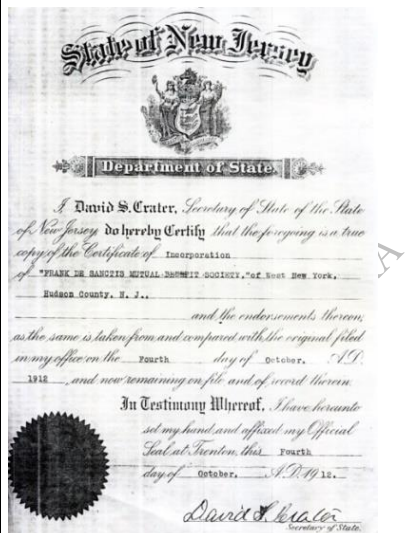 State of New Jersey
Department of State.
I, David S. Crater, Secretary of State of the State
of New Jersey do hereby Certify that the foregoing is a true
copy of the Certificate of Incorporation
of "FRANK DE SANCTIS MUTUAL BENEFIT SOCIETY," of West New York,
Hudson County, N. J.,
and the endorsements thereon,
as the same is taken from and compared with the original filed
in my office on the Fourth day of October, A.D.
1912 , and now remaining on file and of record therein.
In Testimony Whereof, I have hereunto
set my hand and affixed my Official
Seal at Trenton, this Fourth
day of October, A.D. 1912.
David S. Crater
Secretary of State.
A